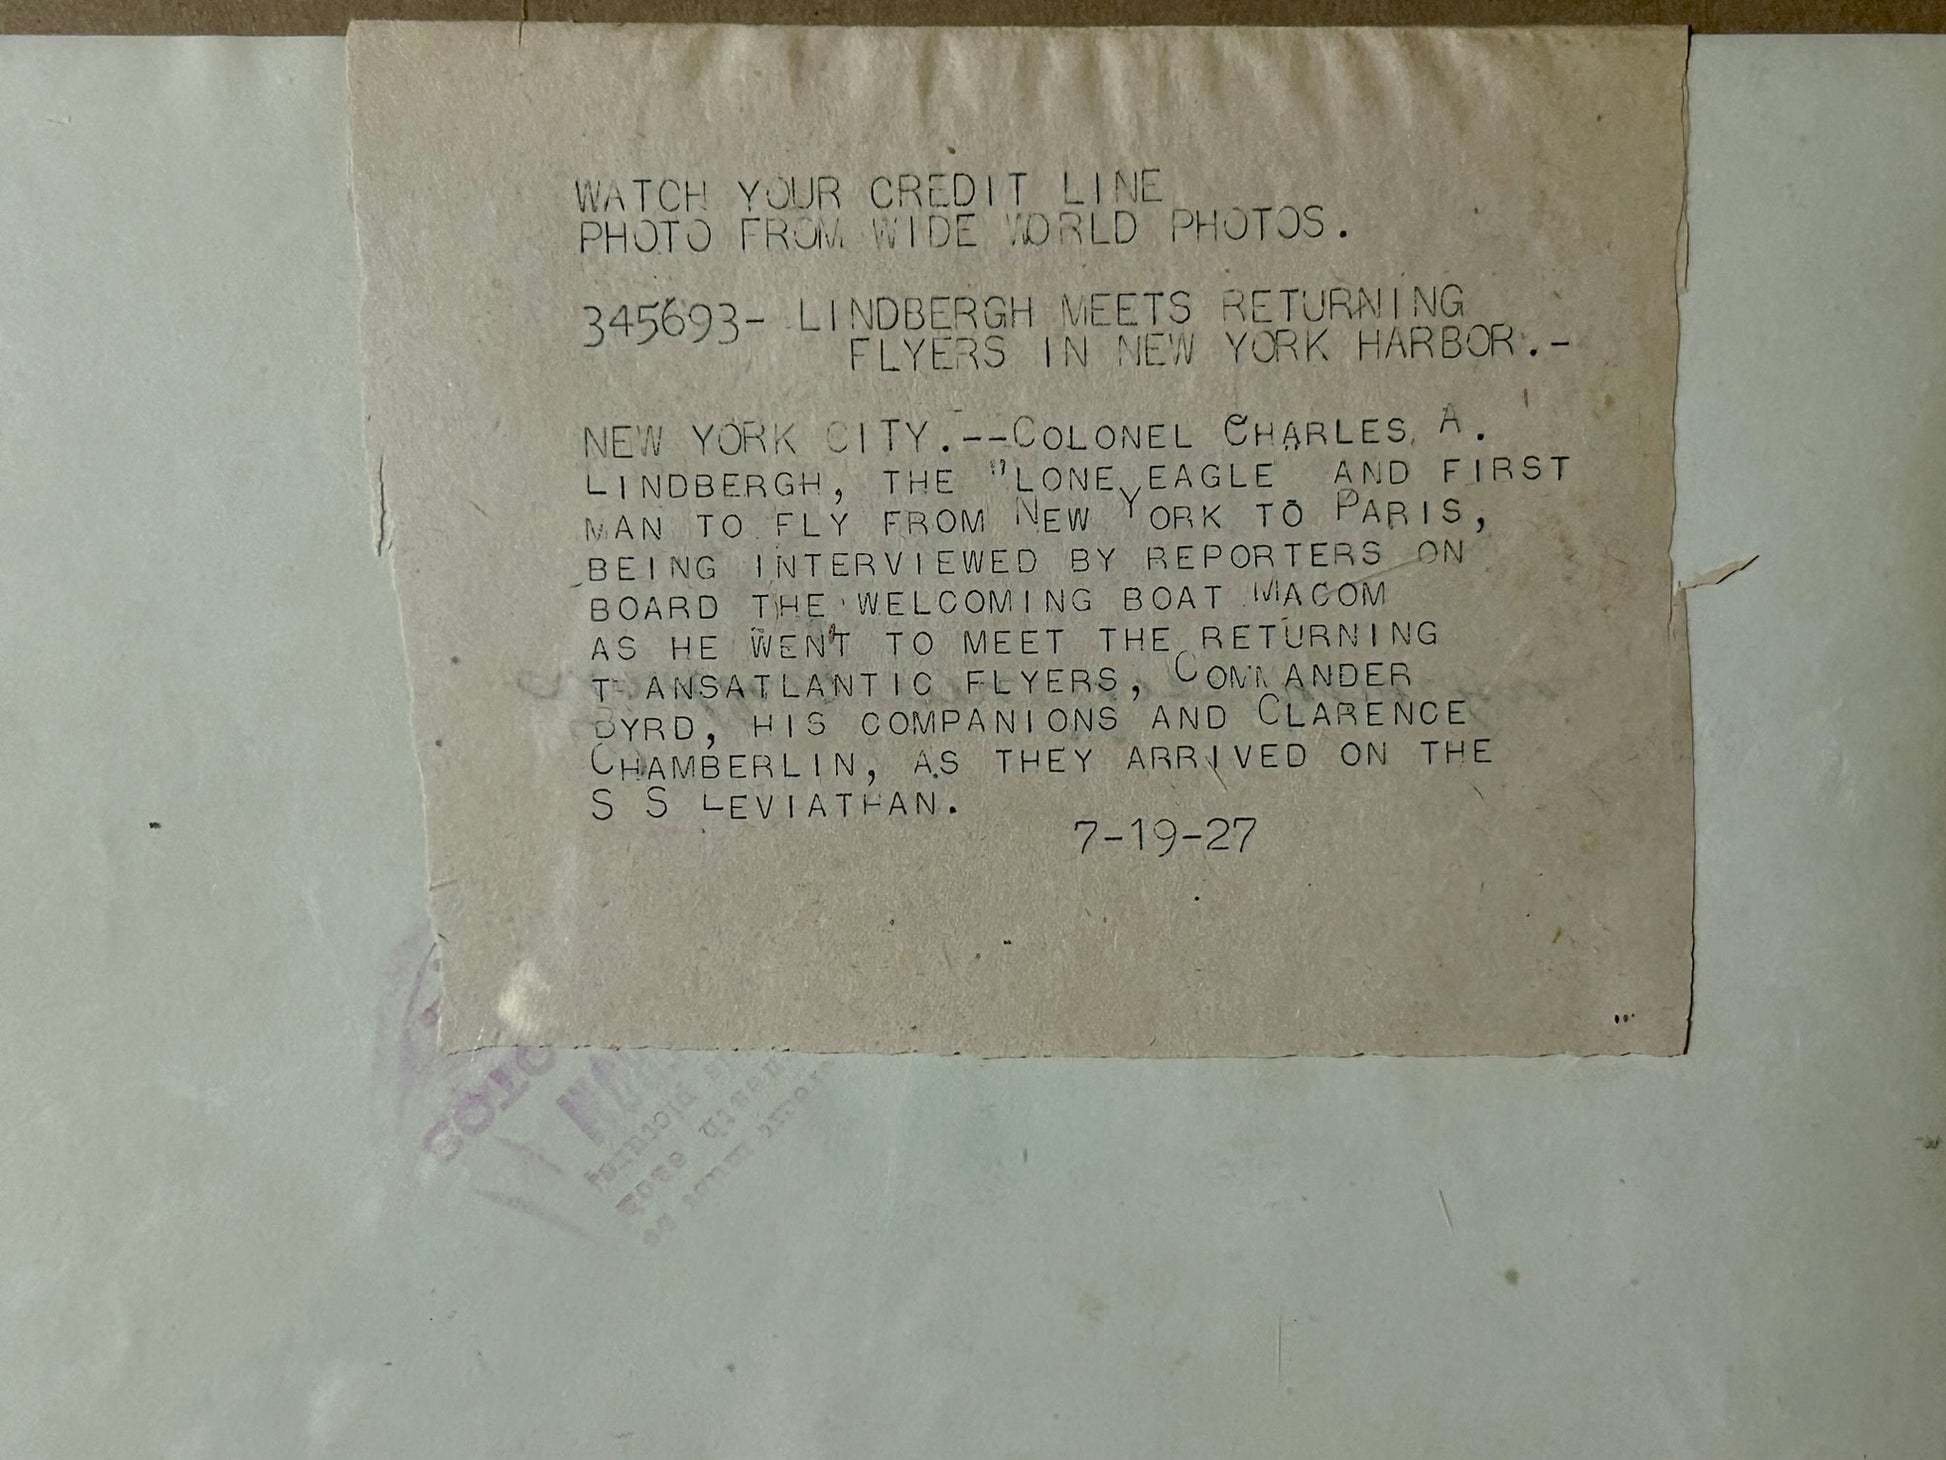 WATCH YOUR CREDIT LINE
PHOTO FROM WIDE WORLD PHOTOS.
345693- LINDBERGH MEETS RETURNING
FLYERS IN NEW YORK HARBOR.-
NEW YORK CITY.--COLONEL CHARLES A.
LINDBERGH, THE "LONE EAGLE AND FIRST
MAN TO FLY FROM NEW YORK TO PARIS,
BEING INTERVIEWED BY REPORTERS ON
BOARD THE WELCOMING BOAT MACOM
AS HE WENT TO MEET THE RETURNING
TRANSATLANTIC FLYERS, COMMANDER
BYRD, HIS COMPANIONS AND CLARENCE
CHAMBERLIN, AS THEY ARRIVED ON THE
S S LEVIATHAN.
7-19-27